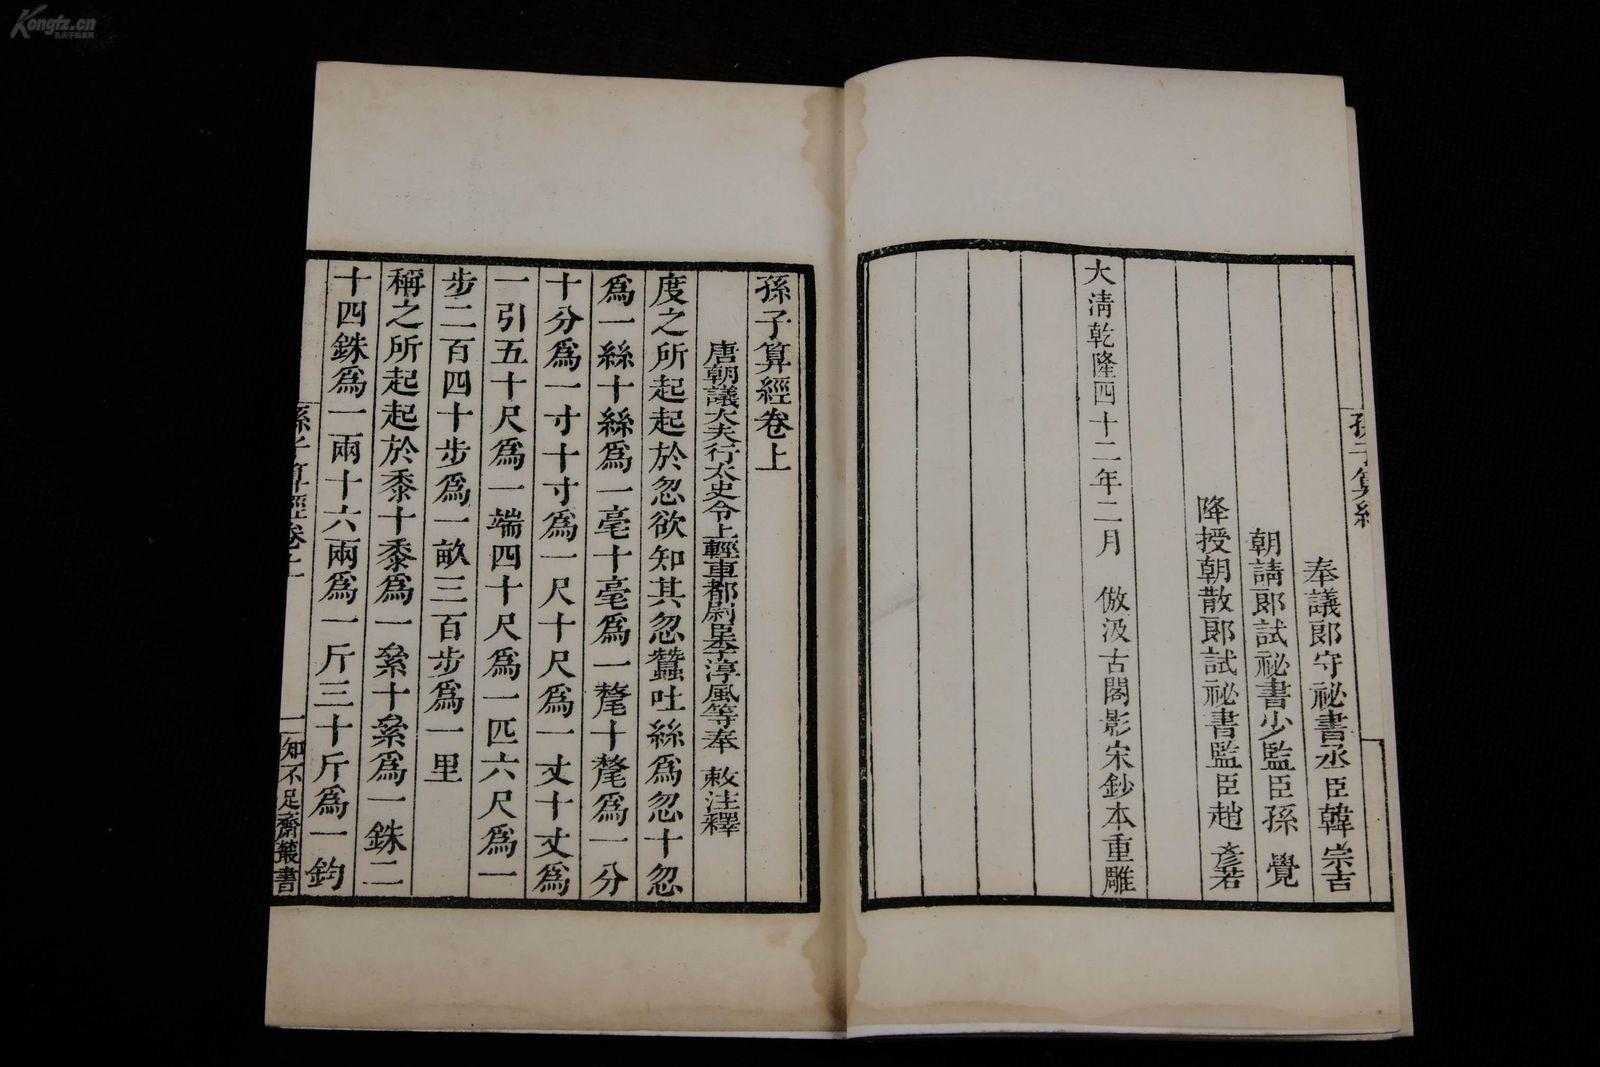 Kongfz.cn
孫子算經
奉議郎守祕書丞臣韓宗吉
朝請郎試祕書少監臣孫覺
降授朝散郎試祕書監臣趙彥若
大清乾隆四十二年二月 倣汲古閣影宋鈔本重雕
孫子算經卷上
唐朝議大夫行太史令上輕車都尉臣李淳風等奉 敕注釋
度之所起起於忽欲知其忽蠶吐絲爲忽十忽
爲一絲十絲爲一毫十毫爲一氂十氂爲一分
十分爲一寸十寸爲一尺十尺爲一丈十丈爲
一引五十尺爲一端四十尺爲一匹六尺爲一
步二百四十步爲一畝三百步爲一里
稱之所起起於黍十黍爲一絫十絫爲一銖二
十四銖爲一兩十六兩爲一斤三十斤爲一鈞
孫子算經卷上
一 知不足齋叢書